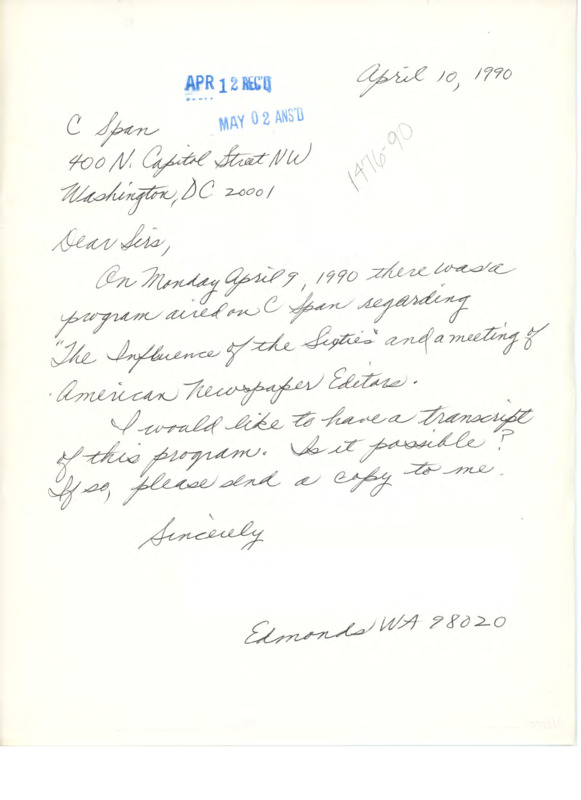 April 10, 1990
APR 12 REC'D
MAY 02 ANS'D
1476-90
C Span
400 N. Capitol Street NW
Washington, DC 20001
Dear Sirs,
On Monday April 9, 1990 there was a
program aired on C Span regarding
"The Influence of the Sixties" and a meeting of
American Newspaper Editors.
I would like to have a transcript
of this program. Is it possible?
If so, please send a copy to me.
Sincerely
Edmonds WA 98020